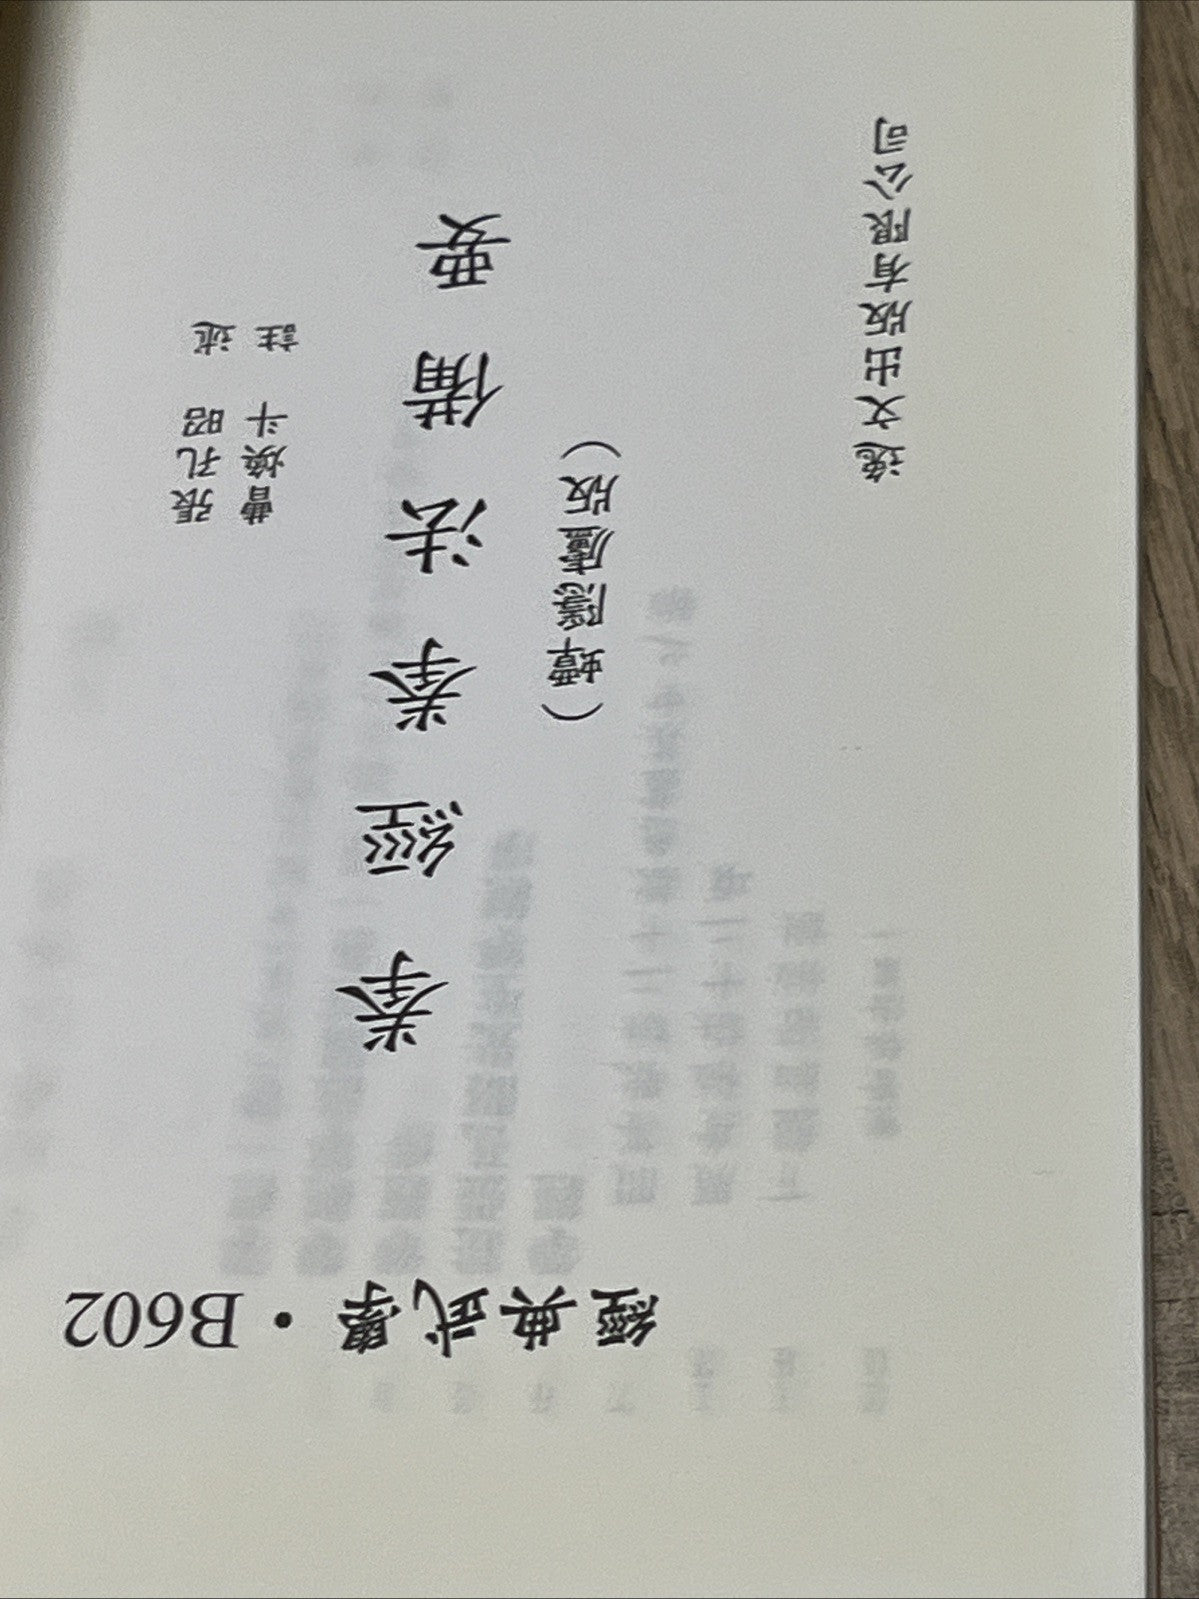 經典武學・B602
張孔昭 述
曹煥斗 註
拳經拳法備要
（蟫隱廬版）
逸文出版有限公司